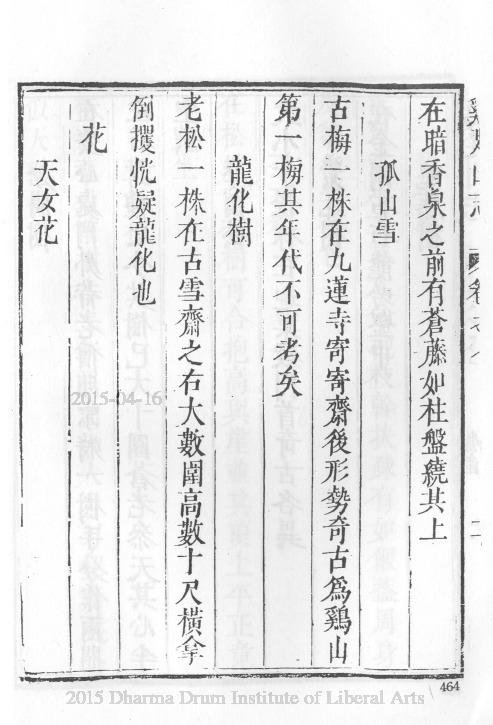 在暗香泉之前有蒼藤如柱盤繞其上
孤山雪
古梅一株在九蓮寺寄寄齋後形勢奇古為鷄山
第一梅其年代不可考矣
龍化樹
老松一株在古雪齋之右大數圍高數十尺橫拿
倒攫恍疑龍化也
花
天女花
2015-04-16
464
2015 Dharma Drum Institute of Liberal Arts